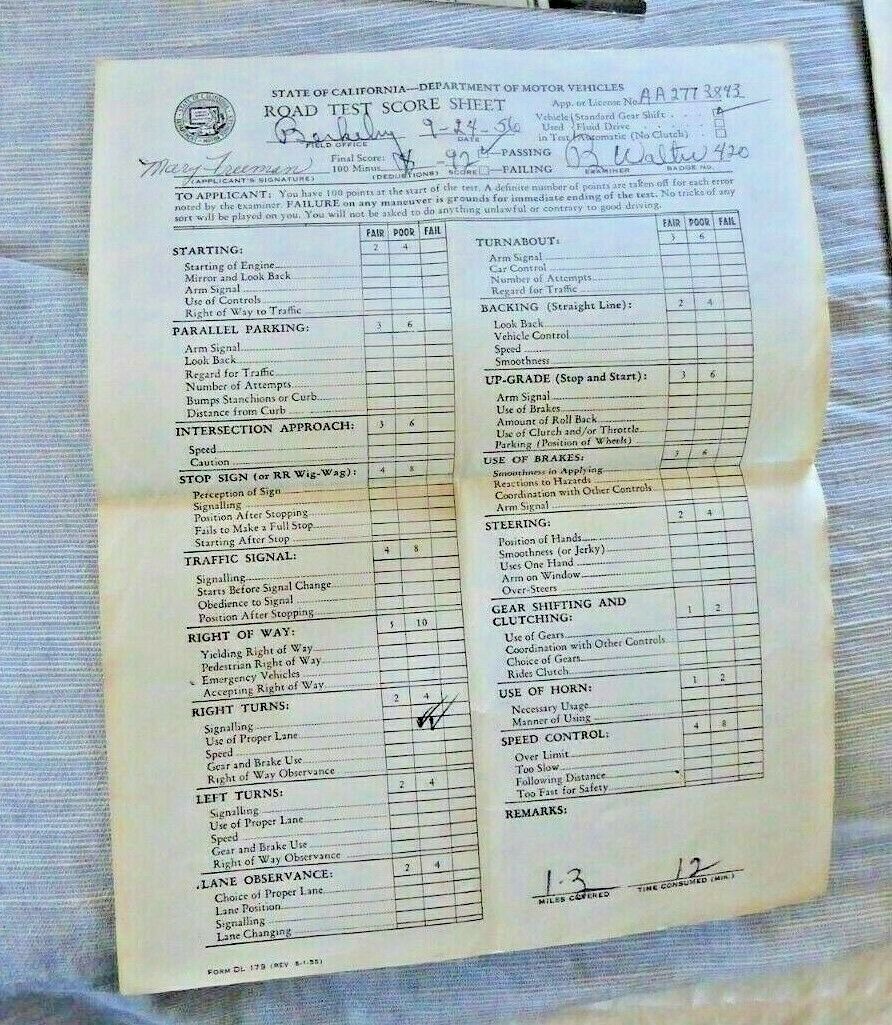 STATE OF CALIFORNIA—DEPARTMENT OF MOTOR VEHICLES
ROAD TEST SCORE SHEET
App. or License No. AA2773843
Berkeley 9-24-56
FIELD OFFICE DATE
Vehicle Used in Test
Standard Gear Shift
Fluid Drive
Automatic (No Clutch)
Mary Freeman
(APPLICANT'S SIGNATURE)
Final Score: 100 Minus 8 -92 PASSING
(DEDUCTIONS) SCORE FAILING
B Walter 420
EXAMINER BADGE NO.
TO APPLICANT: You have 100 points at the start of the test. A definite number of points are taken off for each error
noted by the examiner. FAILURE on any maneuver is grounds for immediate ending of the test. No tricks of any
sort will be played on you. You will not be asked to do anything unlawful or contrary to good driving.
FAIR POOR FAIL
STARTING: 2 4
Starting of Engine
Mirror and Look Back
Arm Signal
Use of Controls
Right of Way to Traffic
PARALLEL PARKING: 3 6
Arm Signal
Look Back
Regard for Traffic
Number of Attempts
Bumps Stanchions or Curb
Distance from Curb
INTERSECTION APPROACH: 3 6
Speed
Caution
STOP SIGN (or RR Wig-Wag): 4 8
Perception of Sign
Signalling
Position After Stopping
Fails to Make a Full Stop
Starting After Stop
TRAFFIC SIGNAL: 4 8
Signalling
Starts Before Signal Change
Obedience to Signal
Position After Stopping
RIGHT OF WAY: 5 10
Yielding Right of Way
Pedestrian Right of Way
Emergency Vehicles
Accepting Right of Way
RIGHT TURNS: 2 4
Signalling
Use of Proper Lane
Speed
Gear and Brake Use
Right of Way Observance
LEFT TURNS: 2 4
Signalling
Use of Proper Lane
Speed
Gear and Brake Use
Right of Way Observance
LANE OBSERVANCE: 2 4
Choice of Proper Lane
Lane Position
Signalling
Lane Changing
FORM DL 179 (REV. 8-1-55)
FAIR POOR FAIL
TURNABOUT: 3 6
Arm Signal
Car Control
Number of Attempts
Regard for Traffic
BACKING (Straight Line): 2 4
Look Back
Vehicle Control
Speed
Smoothness
UP-GRADE (Stop and Start): 3 6
Arm Signal
Use of Brakes
Amount of Roll Back
Use of Clutch and/or Throttle
Parking (Position of Wheels)
USE OF BRAKES: 3 6
Smoothness in Applying
Reactions to Hazards
Coordination with Other Controls
Arm Signal
STEERING: 2 4
Position of Hands
Smoothness (or Jerky)
Uses One Hand
Arm on Window
Over-Steers
GEAR SHIFTING AND
CLUTCHING: 1 2
Use of Gears
Coordination with Other Controls
Choice of Gears
Rides Clutch
USE OF HORN: 1 2
Necessary Usage
Manner of Using
SPEED CONTROL: 4 8
Over Limit
Too Slow
Following Distance
Too Fast for Safety
REMARKS:
1.3 12
MILES COVERED TIME CONSUMED (MIN.)